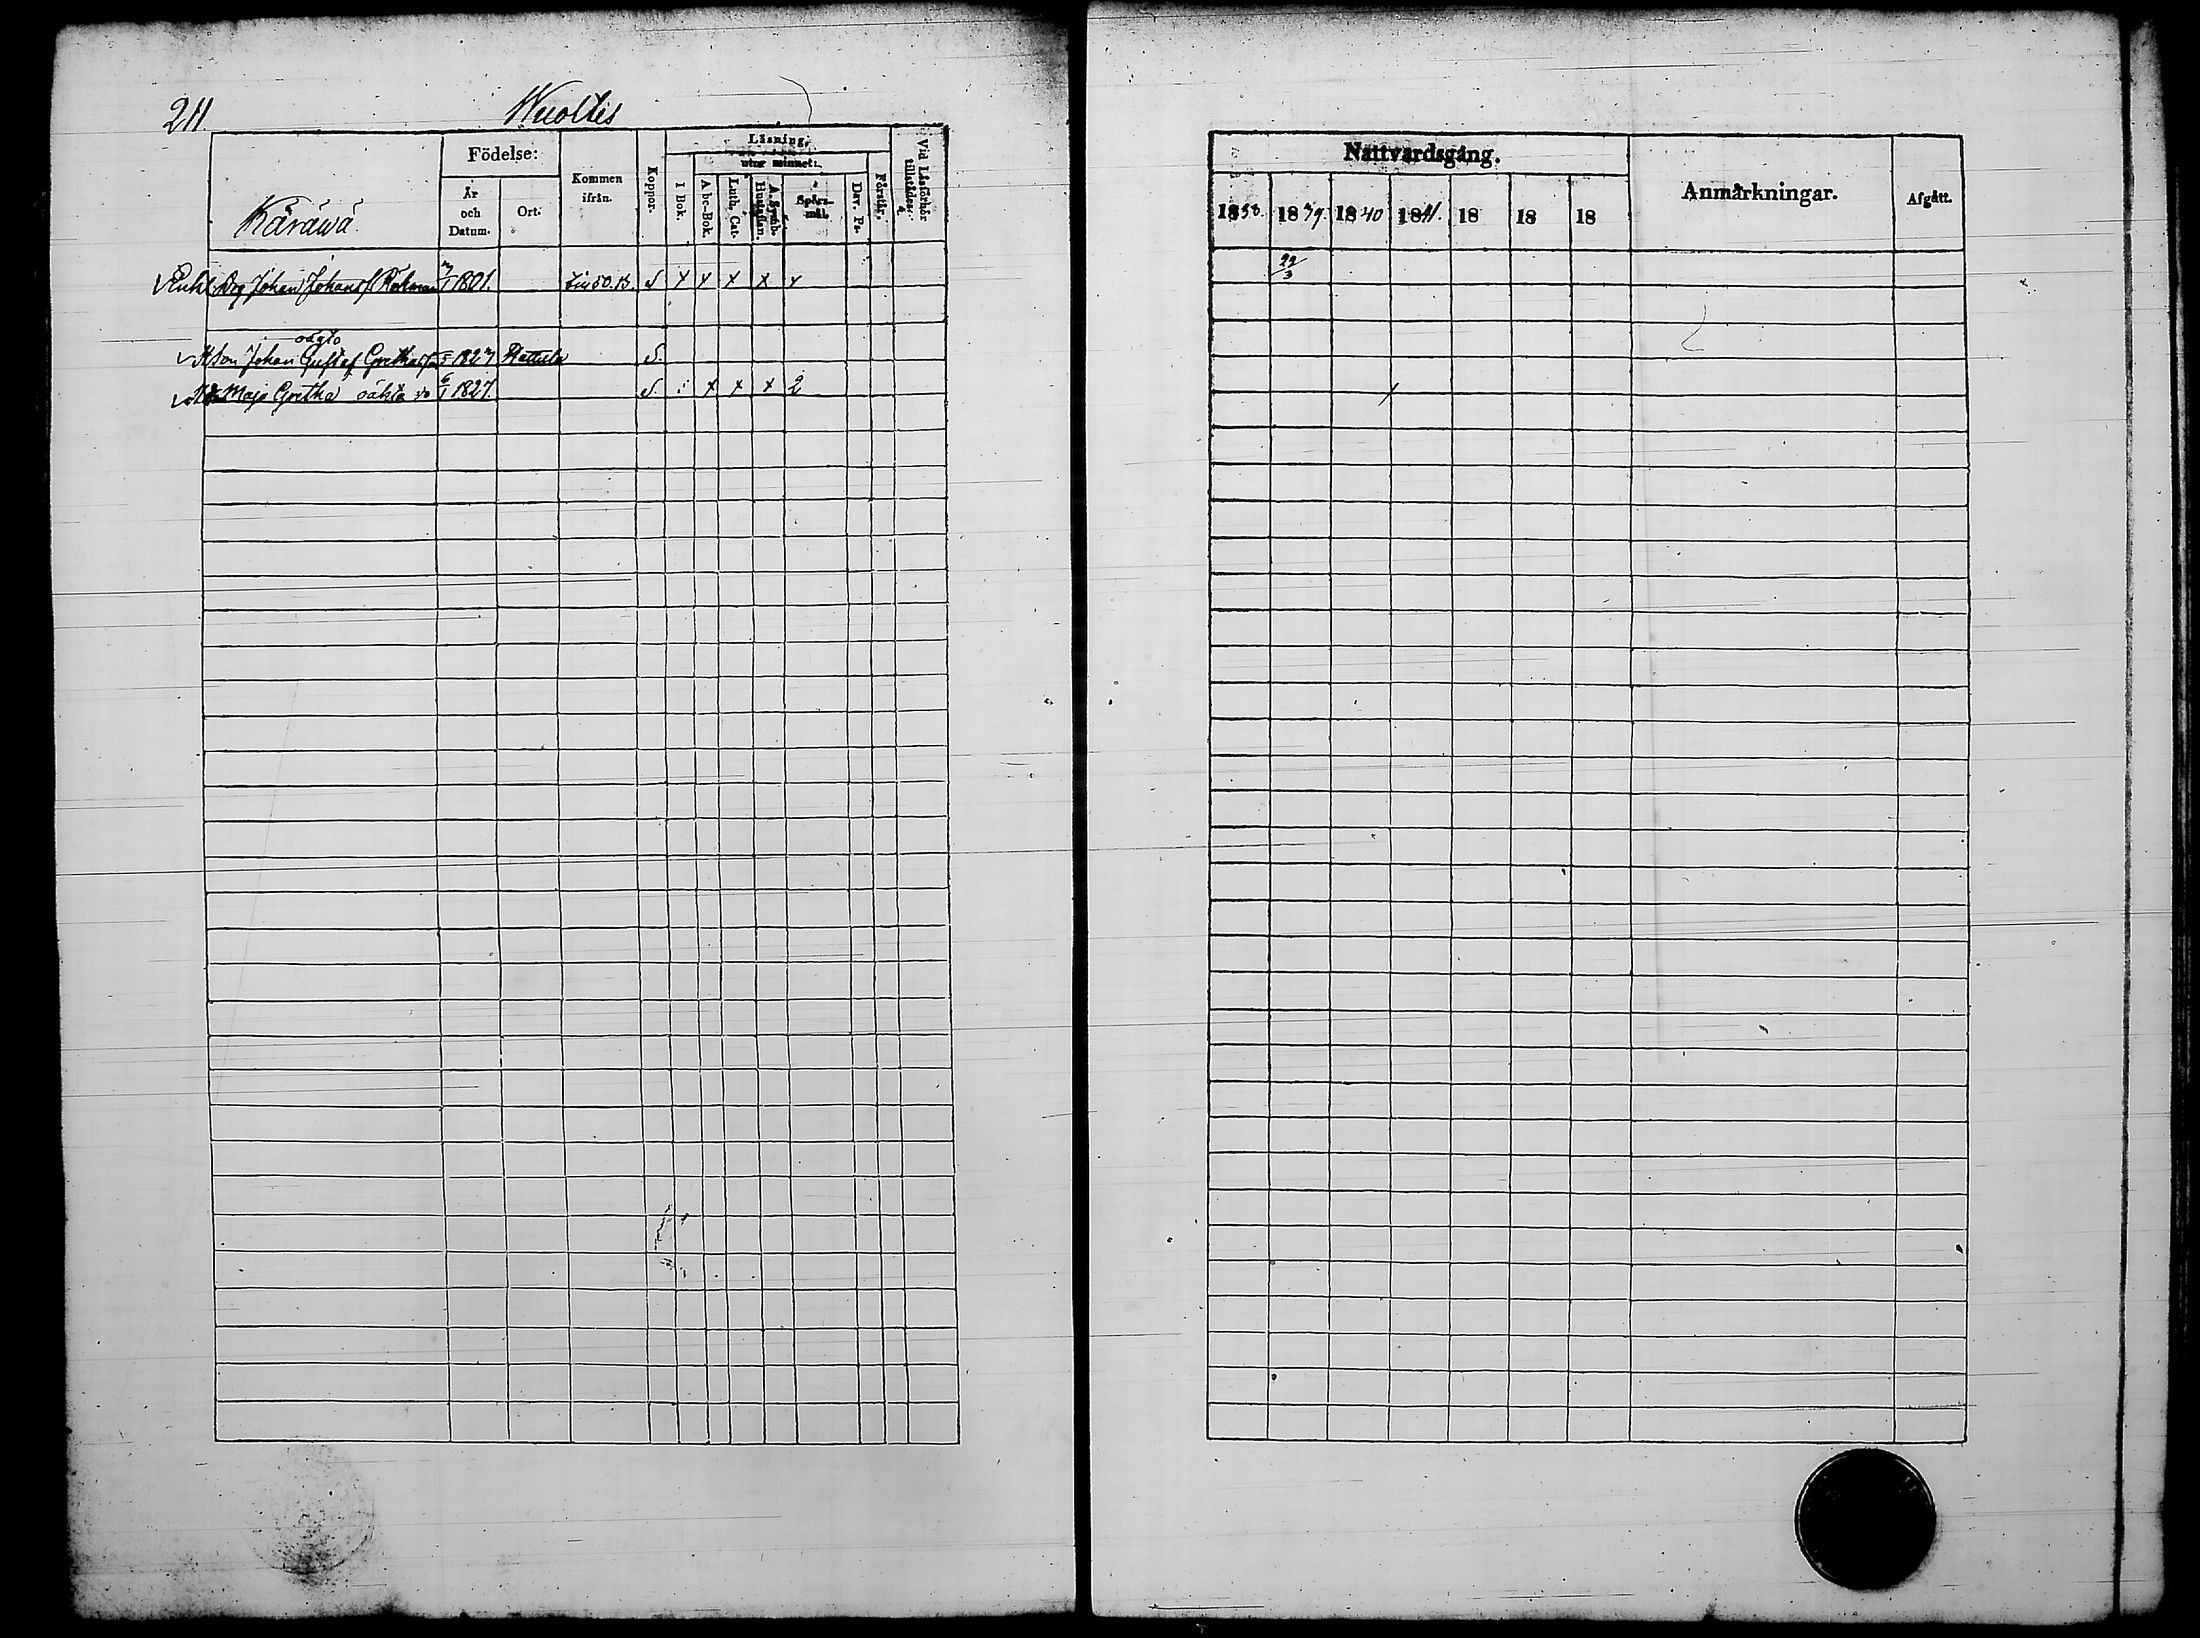 211.
Wuoltis
Käräwä.
Födelse:
År och Datum.
Ort.
Kommen ifrån.
Koppor.
Läsning,
utur minnet:
I Bok.
A bc-Bok.
Luth. Cat.
A. Symb. Hustaflan.
Spörsmål.
Dav. Ps.
Förstår.
Vid Läsförhör tillstädes.
Johan Johans 1801. S x x x x x
oägta
Johan Gustaf 1827 Hattula S.
Maja Gretha oäkta 6/1 1827. S. x x x 2
Nattvardsgång.
1838. 1839. 1840 1841. 18 18 18
Anmärkningar.
Afgått.
22/3